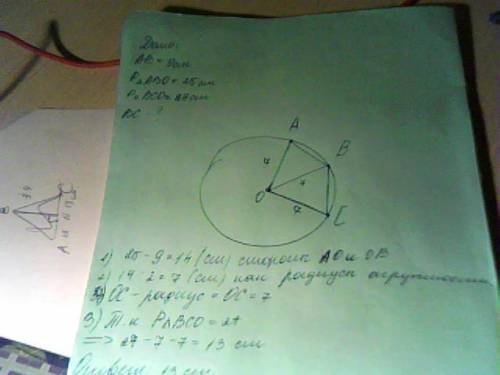 Дано:
AB = 9см
P△ABO = 25см
P△BCO = 27см
BC - ?
A
B
7
7
O
7
C
1) 25 - 9 = 14 (см) стороны AO и OB
2) 14 : 2 = 7 (см) как радиусы окружности
OC - радиус = OC = 7
3) Т.к P△BCO = 27
⇒ 27 - 7 - 7 = 13 см
Ответ 13 см